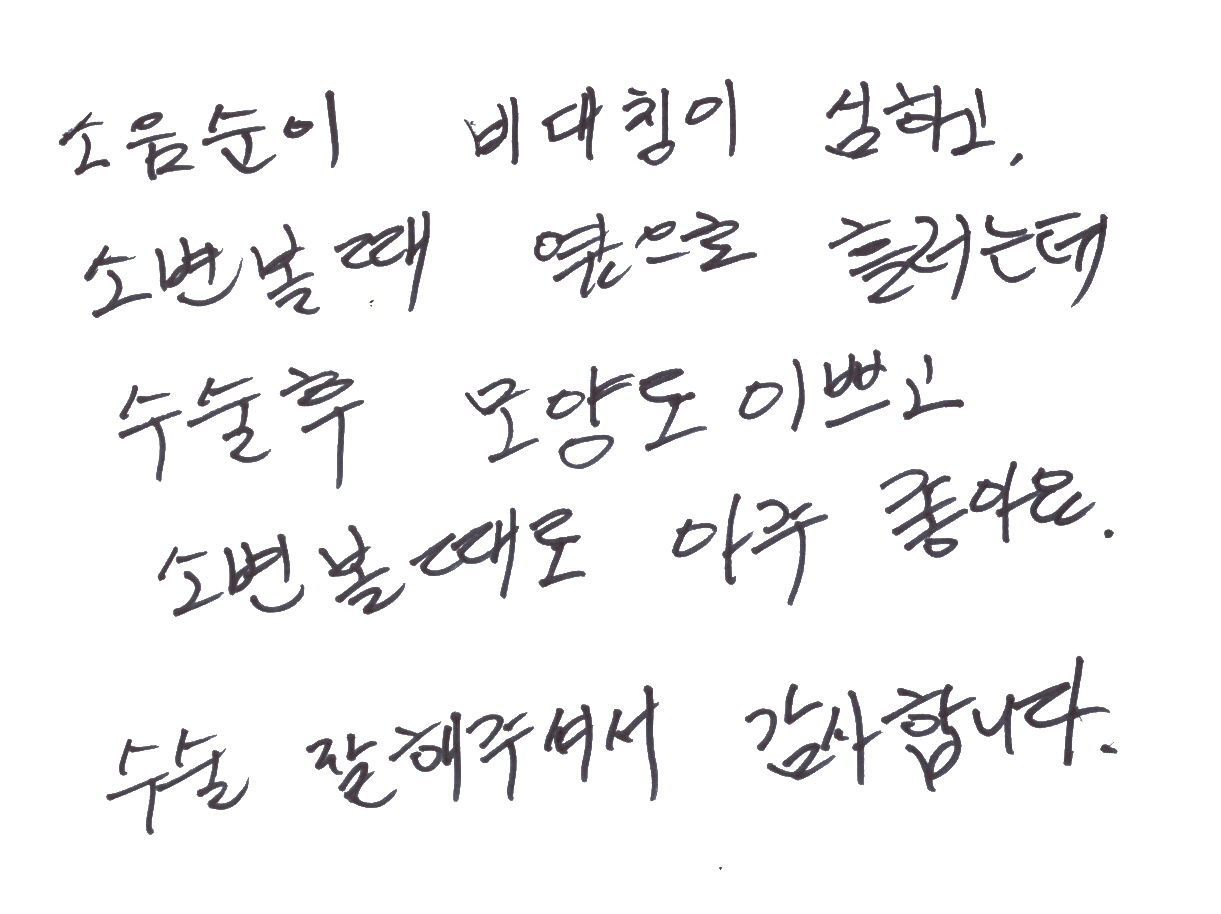 소음순이 비대칭이 심하고,
소변볼때 옆으로 흘러는데
수술후 모양도 이쁘고
소변볼때도 아주 좋아요.
수술 잘해주셔서 감사합니다.